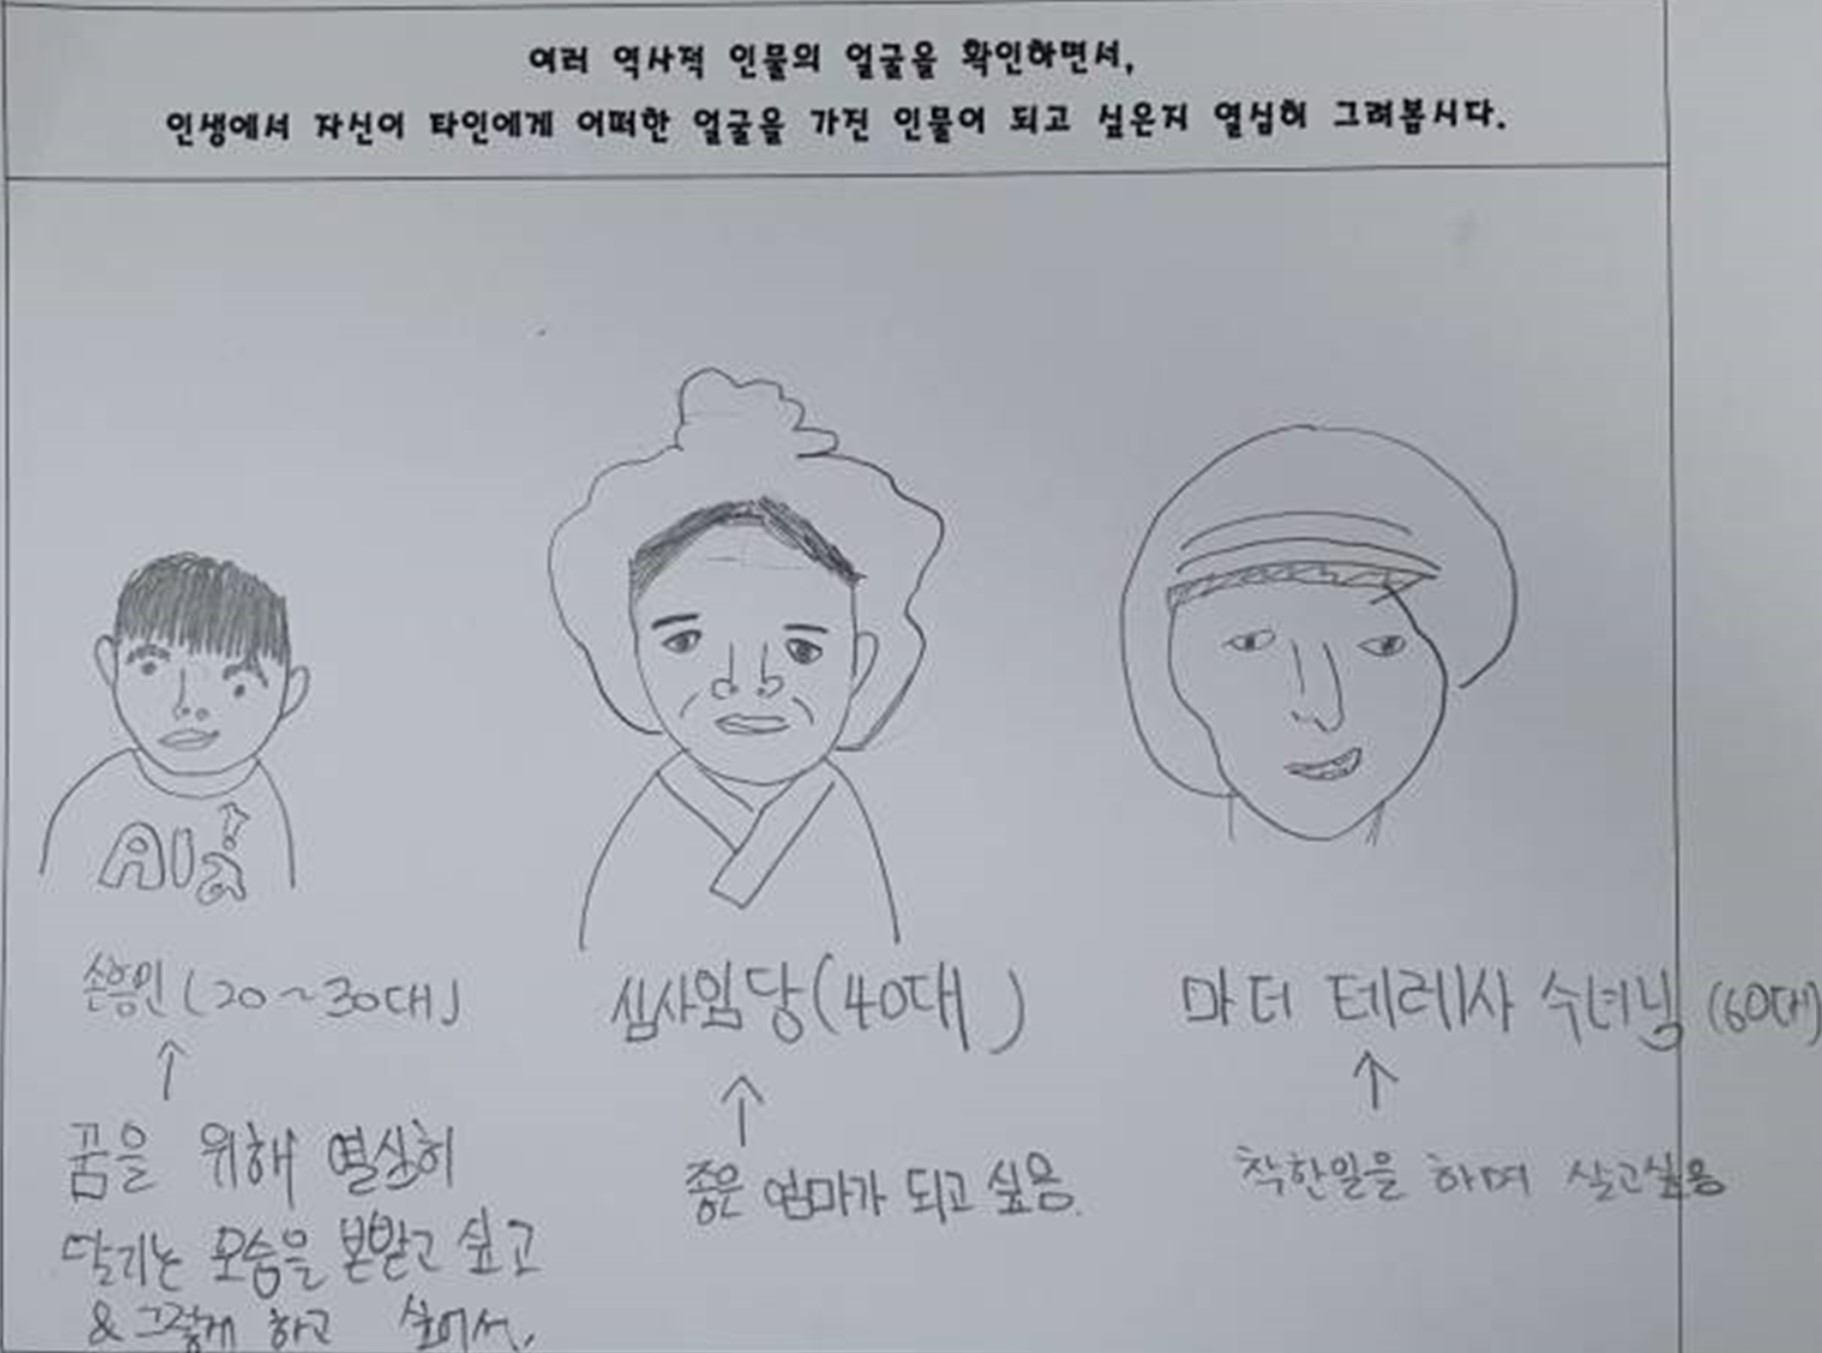 여러 역사적 인물의 얼굴을 확인하면서,
인생에서 자신이 타인에게 어떠한 얼굴을 가진 인물이 되고 싶은지 열심히 그려봅시다.
손흥민 (20~30대)
꿈을 위해 열심히
달리는 모습을 본받고 싶고
& 그렇게 하고 싶어서.
심사임당 (40대)
좋은 엄마가 되고 싶음.
마더 테레사 수녀님 (60대)
착한일을 하며 살고싶음